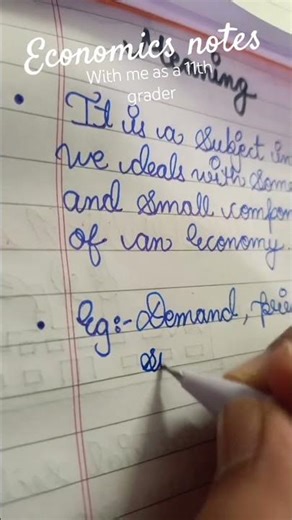 Economics notes
With me as a 11th
grader
Meaning
• It is a subject in
we deals with som
and small compon
of an economy.
• Eg:- Demand, pri
su